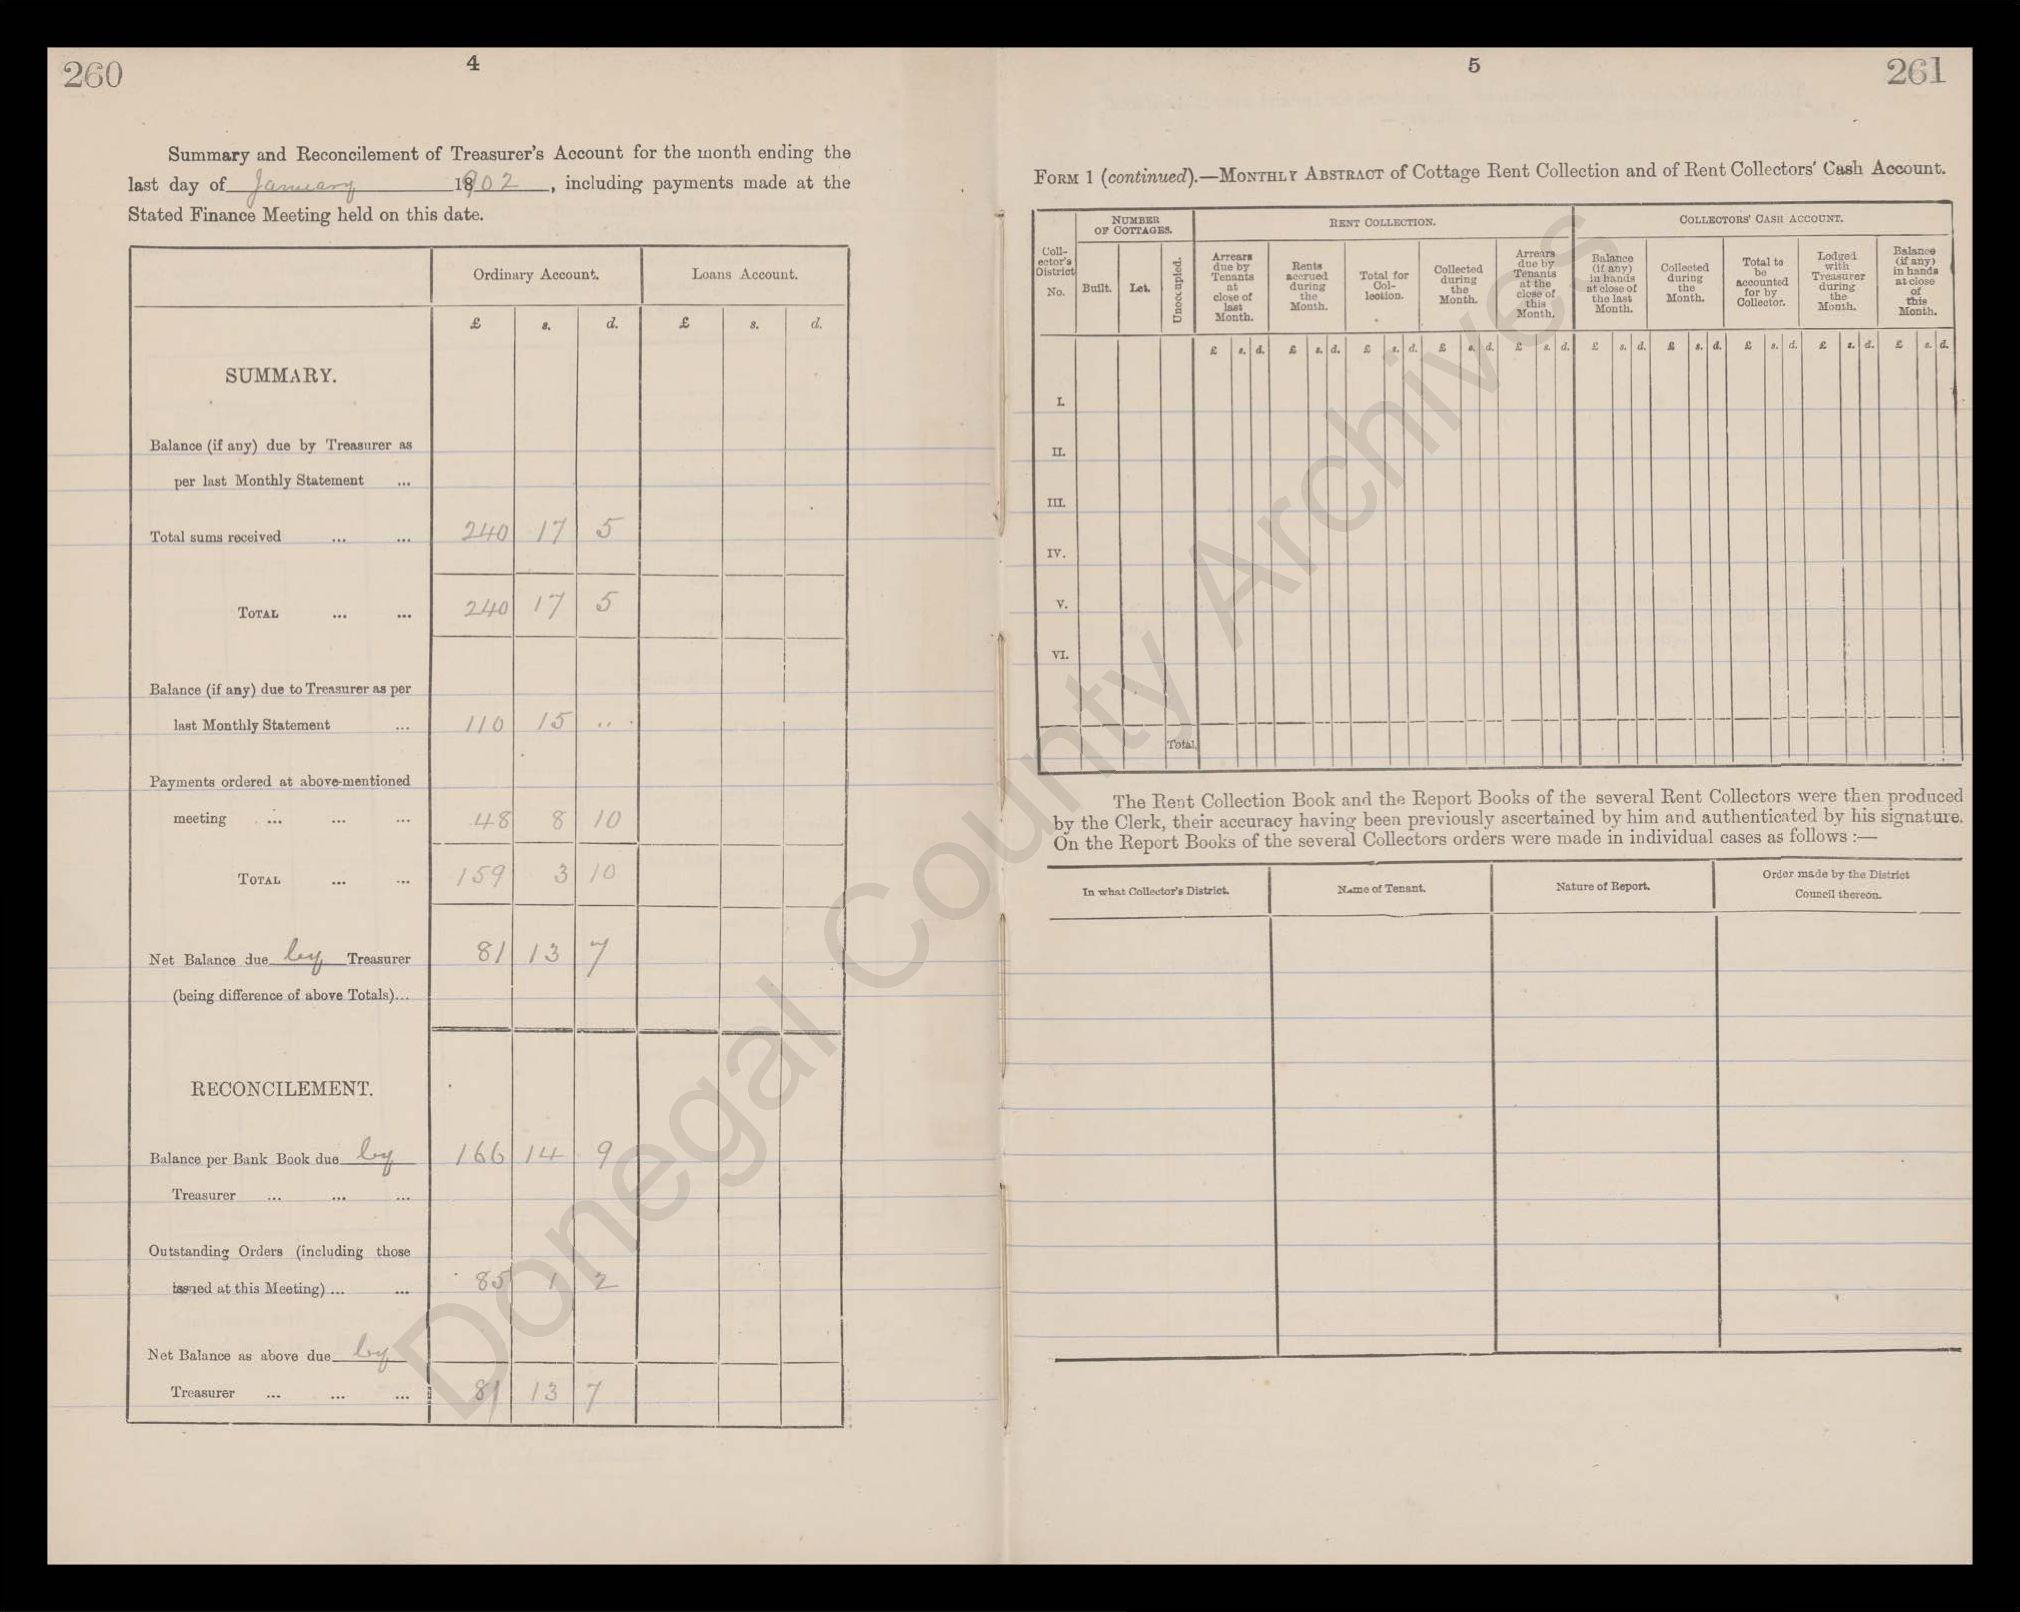 260
4
Summary and Reconcilement of Treasurer's Account for the month ending the
last day of January 1902, including payments made at the
Stated Finance Meeting held on this date.
Ordinary Account. Loans Account.
£ s. d. £ s. d.
SUMMARY.
Balance (if any) due by Treasurer as
per last Monthly Statement ...
Total sums received ... ... 240 17 5
TOTAL ... ... 240 17 5
Balance (if any) due to Treasurer as per
last Monthly Statement ... 110 15 ..
Payments ordered at above-mentioned
meeting ... ... ... 48 8 10
TOTAL ... ... 159 3 10
Net Balance due by Treasurer 81 13 7
(being difference of above Totals)...
RECONCILEMENT.
Balance per Bank Book due by 166 14 9
Treasurer ... ... ...
Outstanding Orders (including those
issued at this Meeting) ... ... 85 1 2
Net Balance as above due by
Treasurer ... ... ... 81 13 7
5
261
FORM 1 (continued).—MONTHLY ABSTRACT of Cottage Rent Collection and of Rent Collectors' Cash Account.
Collector's District No.
NUMBER OF COTTAGES.
Built. Let. Unoccupied.
RENT COLLECTION.
Arrears due by Tenants at close of last Month.
Rents accrued during the Month.
Total for Collection.
Collected during the Month.
Arrears due by Tenants at the close of this Month.
COLLECTORS' CASH ACCOUNT.
Balance (if any) in hands at close of the last Month.
Collected during the Month.
Total to be accounted for by Collector.
Lodged with Treasurer during the Month.
Balance (if any) in hands at close of this Month.
£ s. d. £ s. d. £ s. d. £ s. d. £ s. d. £ s. d. £ s. d. £ s. d. £ s. d. £ s. d.
I.
II.
III.
IV.
V.
VI.
Total.
The Rent Collection Book and the Report Books of the several Rent Collectors were then produced
by the Clerk, their accuracy having been previously ascertained by him and authenticated by his signature.
On the Report Books of the several Collectors orders were made in individual cases as follows :—
In what Collector's District. Name of Tenant. Nature of Report. Order made by the District
Council thereon.
Donegal County Archives